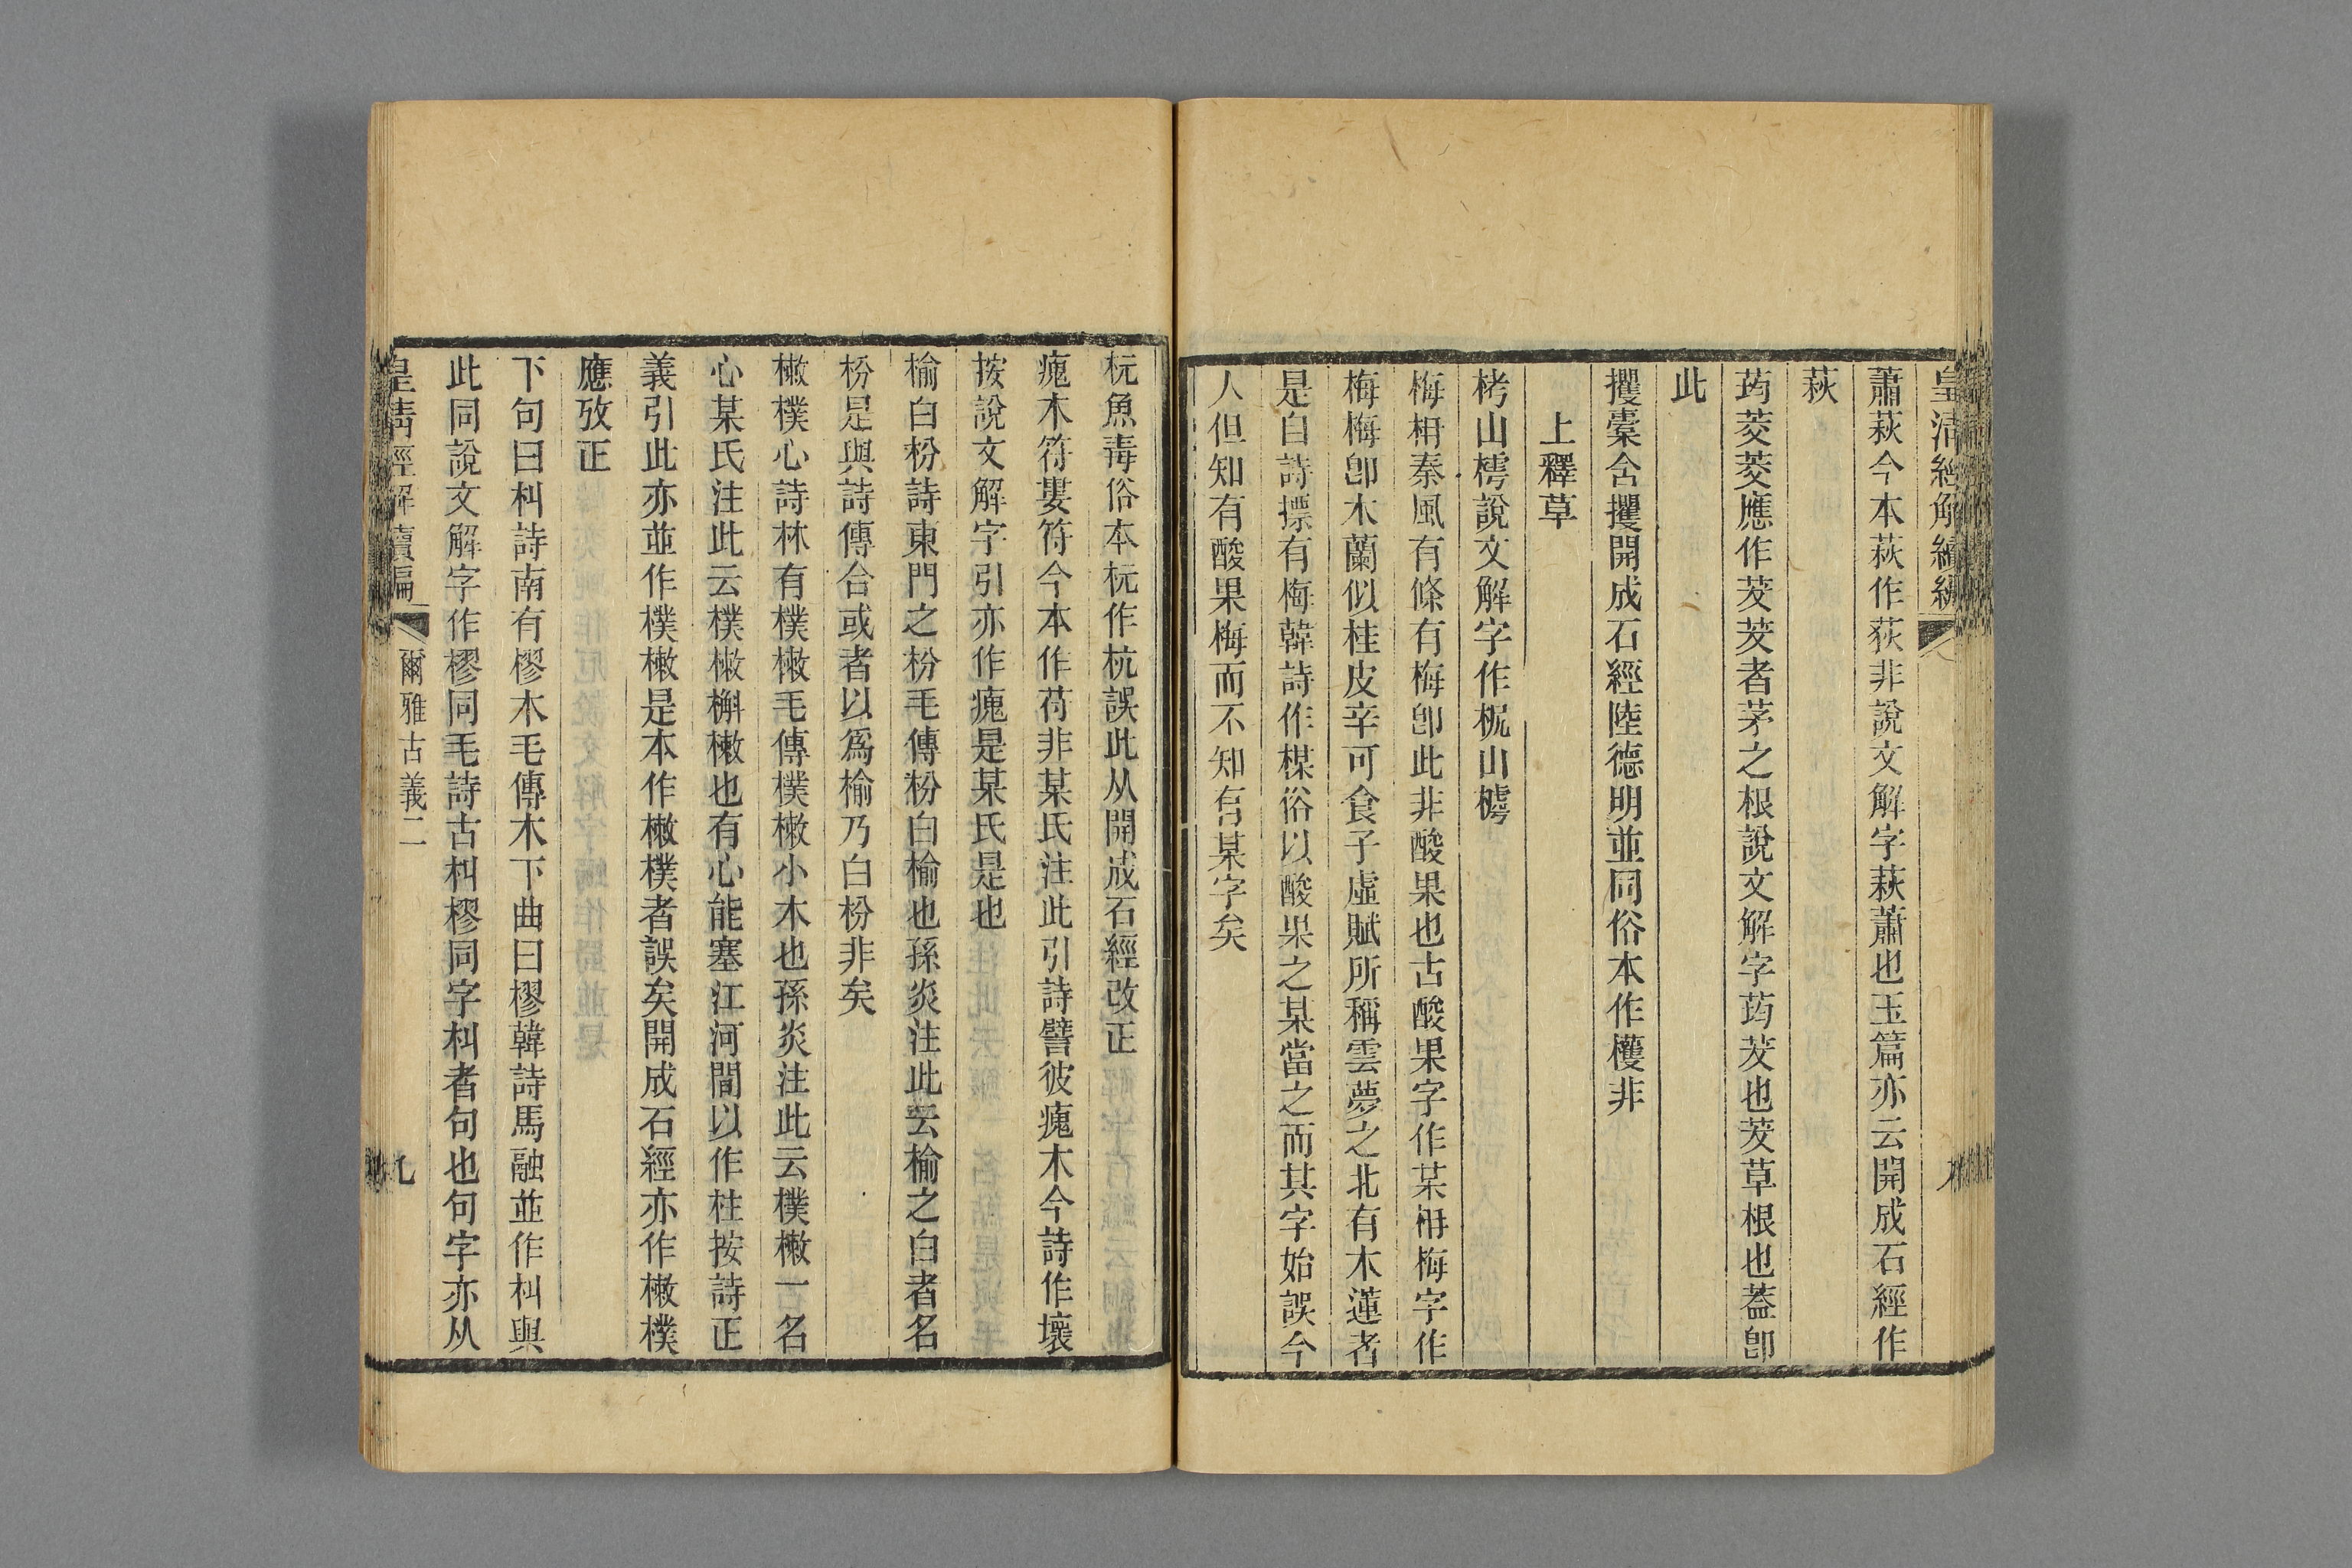 皇清經解續編
蕭萩今本萩作荻非說文解字萩蕭也玉篇亦云開成石經作
萩
荺茭茭應作茇茇者茅之根說文解字荺茇也茇草根也蓋卽
此
攫橐含攫開成石經陸德明並同俗本作欔非
上釋草
栲山樗說文解字作柅山樗
梅柟秦風有條有梅卽此非酸果也古酸果字作某柟梅字作
梅梅卽木蘭似桂皮辛可食子虛賦所稱雲夢之北有木蓮者
是自詩摽有梅韓詩作楳俗以酸果之某當之而其字始誤今
人但知有酸果梅而不知有某字矣
杬魚毒俗本杬作杭誤此从開成石經改正
瘣木符婁符今本作苻非某氏注此引詩譬彼瘣木今詩作壞
按說文解字引亦作瘣是某氏是也
榆白枌詩東門之枌毛傳枌白榆也孫炎注此云榆之白者名
枌是與詩傳合或者以爲榆乃白枌非矣
樕樸心詩林有樸樕毛傳樸樕小木也孫炎注此云樸樕一名
心某氏注此云樸樕槲樕也有心能塞江河間以作柱按詩正
義引此亦並作樸樕是本作樕樸者誤矣開成石經亦作樕樸
應攷正
下句曰朻詩南有樛木毛傳木下曲曰樛韓詩馬融並作朻與
此同說文解字作樛同毛詩古朻樛同字朻者句也句字亦从
皇清經解續編 爾雅古義二 九